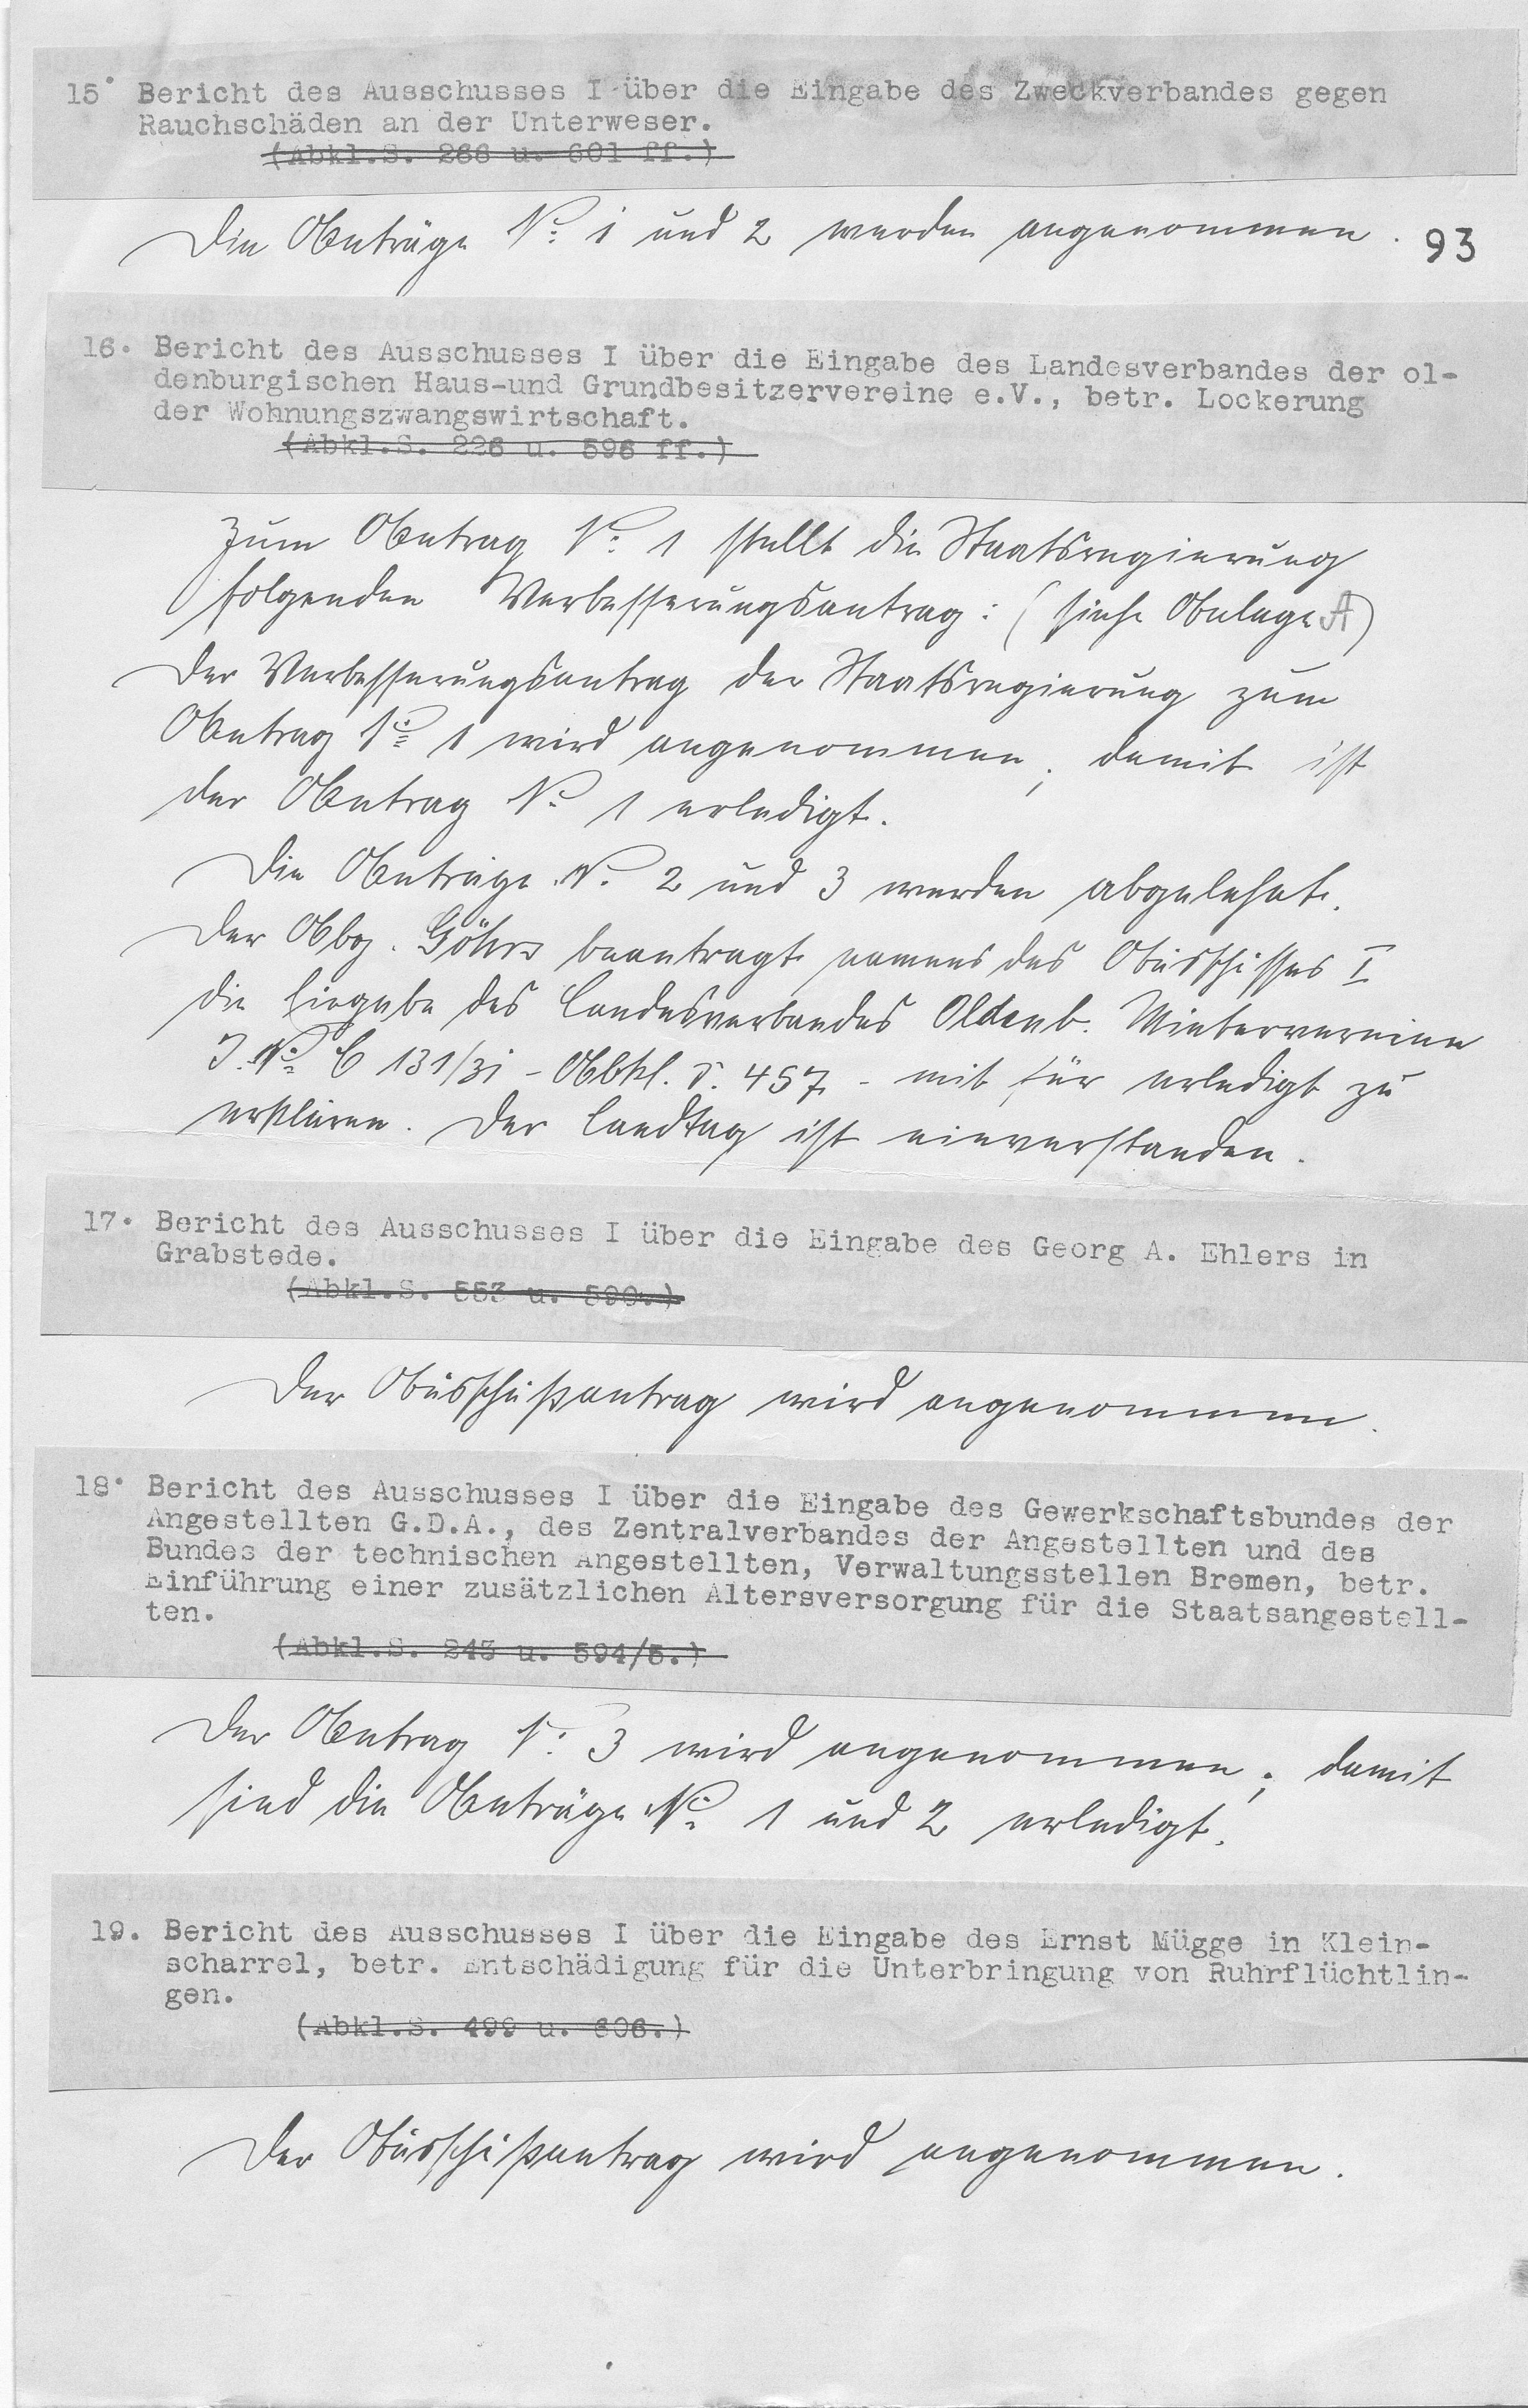 15. Bericht des Ausschusses I über die Eingabe des Zweckverbandes gegen
Rauchschäden an der Unterweser.
(Abkl.S. 266 u. 601 ff.)
Die Anträge No. 1 und 2 werden angenommen.
93
16. Bericht des Ausschusses I über die Eingabe des Landesverbandes der ol-
denburgischen Haus-und Grundbesitzervereine e.V., betr. Lockerung
der Wohnungszwangswirtschaft.
(Abkl.S. 226 u. 596 ff.)
Zum Antrag No. 1 stellt die Staatsregierung
folgenden Verbesserungsantrag: (siehe Anlage A)
Der Verbesserungsantrag der Staatsregierung zum
Antrag No. 1 wird angenommen; damit ist
der Antrag No. 1 erledigt.
Die Anträge No. 2 und 3 werden abgelehnt.
Der Abg. Göhrs beantragt namens des Ausschusses I
die Eingabe des Landesverbandes Oldenb. Mietervereine
J. No. C 131/31 - Abkl. S. 457 - mit für erledigt zu
erklären. Der Landtag ist einverstanden.
17. Bericht des Ausschusses I über die Eingabe des Georg A. Ehlers in
Grabstede.
(Abkl.S. 553 u. 590.)
Der Ausschußantrag wird angenommen.
18. Bericht des Ausschusses I über die Eingabe des Gewerkschaftsbundes der
Angestellten G.D.A., des Zentralverbandes der Angestellten und des
Bundes der technischen Angestellten, Verwaltungsstellen Bremen, betr.
Einführung einer zusätzlichen Altersversorgung für die Staatsangestell-
ten.
(Abkl.S. 243 u. 594/5.)
Der Antrag No. 3 wird angenommen; damit
sind die Anträge No. 1 und 2 erledigt.
19. Bericht des Ausschusses I über die Eingabe des Ernst Mügge in Klein-
scharrel, betr. Entschädigung für die Unterbringung von Ruhrflüchtlin-
gen.
(Abkl.S. 499 u. 606.)
Der Ausschußantrag wird angenommen.